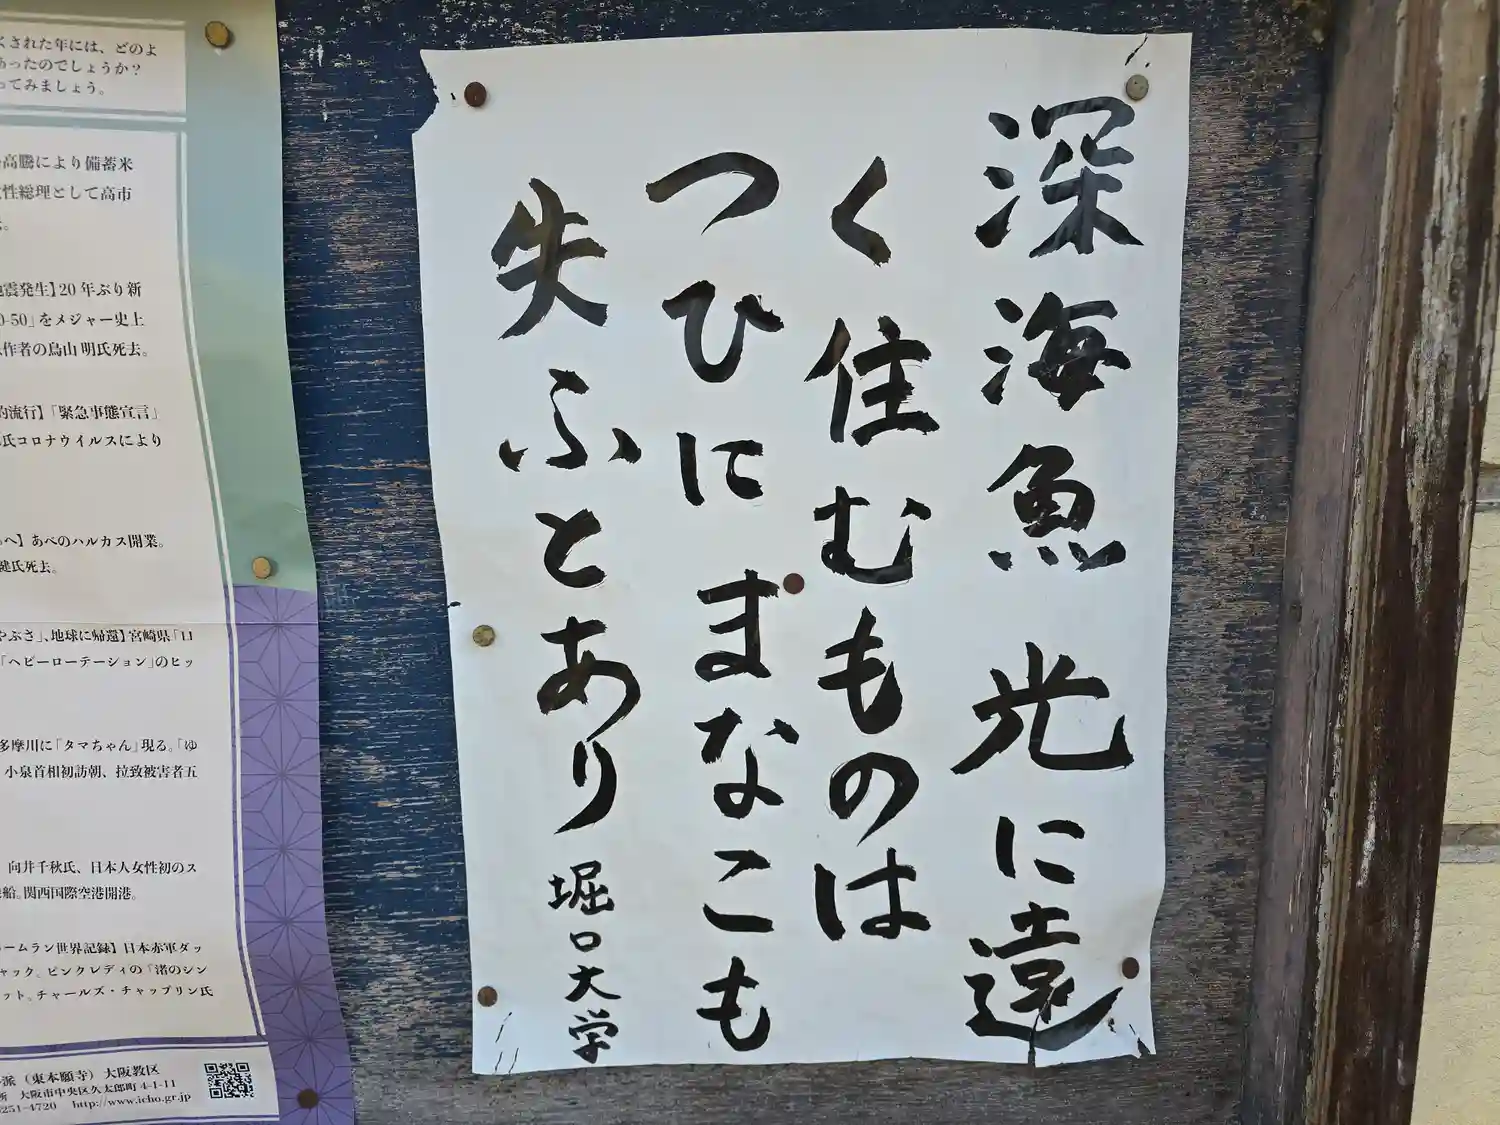 深海魚 光に遠
く住むものは
つひにまなこも
失ふとあり 堀口大学
くされた年には、どのよ
あったのでしょうか?
ってみましょう。
高騰により備蓄米
性総理として高市
地震発生】20年ぶり新
0-50」をメジャー史上
作者の鳥山明氏死去。
的流行】「緊急事態宣言」
氏コロナウイルスにより
へ】あべのハルカス開業。
健氏死去。
やぶさ」、地球に帰還】宮崎県「口
「ヘビーローテーション」のヒッ
多摩川に「タマちゃん」現る。「ゆ
小泉首相初訪朝、拉致被害者五
向井千秋氏、日本人女性初のス
船。関西国際空港開港。
ームラン世界記録】日本赤軍ダッ
ャック。ピンクレディの「渚のシン
ット。チャールズ・チャップリン氏
派(東本願寺)大阪教区
所 大阪市中央区久太郎町4-1-11
6251-4720 http://www.icho.gr.jp